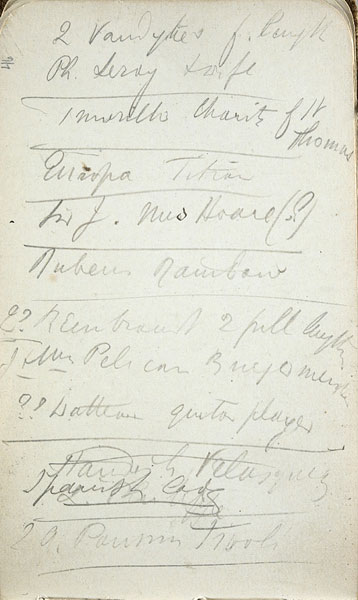 2 Vandykes f. length
Ph. Leroy & wife
1 murillo Charity of St
Thomas
Europa Titian
Sir J. Mrs Hoare (?)
Rubens Rainbow
2? Rembrandt 2 full lengths
& Mrs Pelican Burgermeister
?? Watteau guitar player
Velasquez
Spanish Lady
2 Poussin